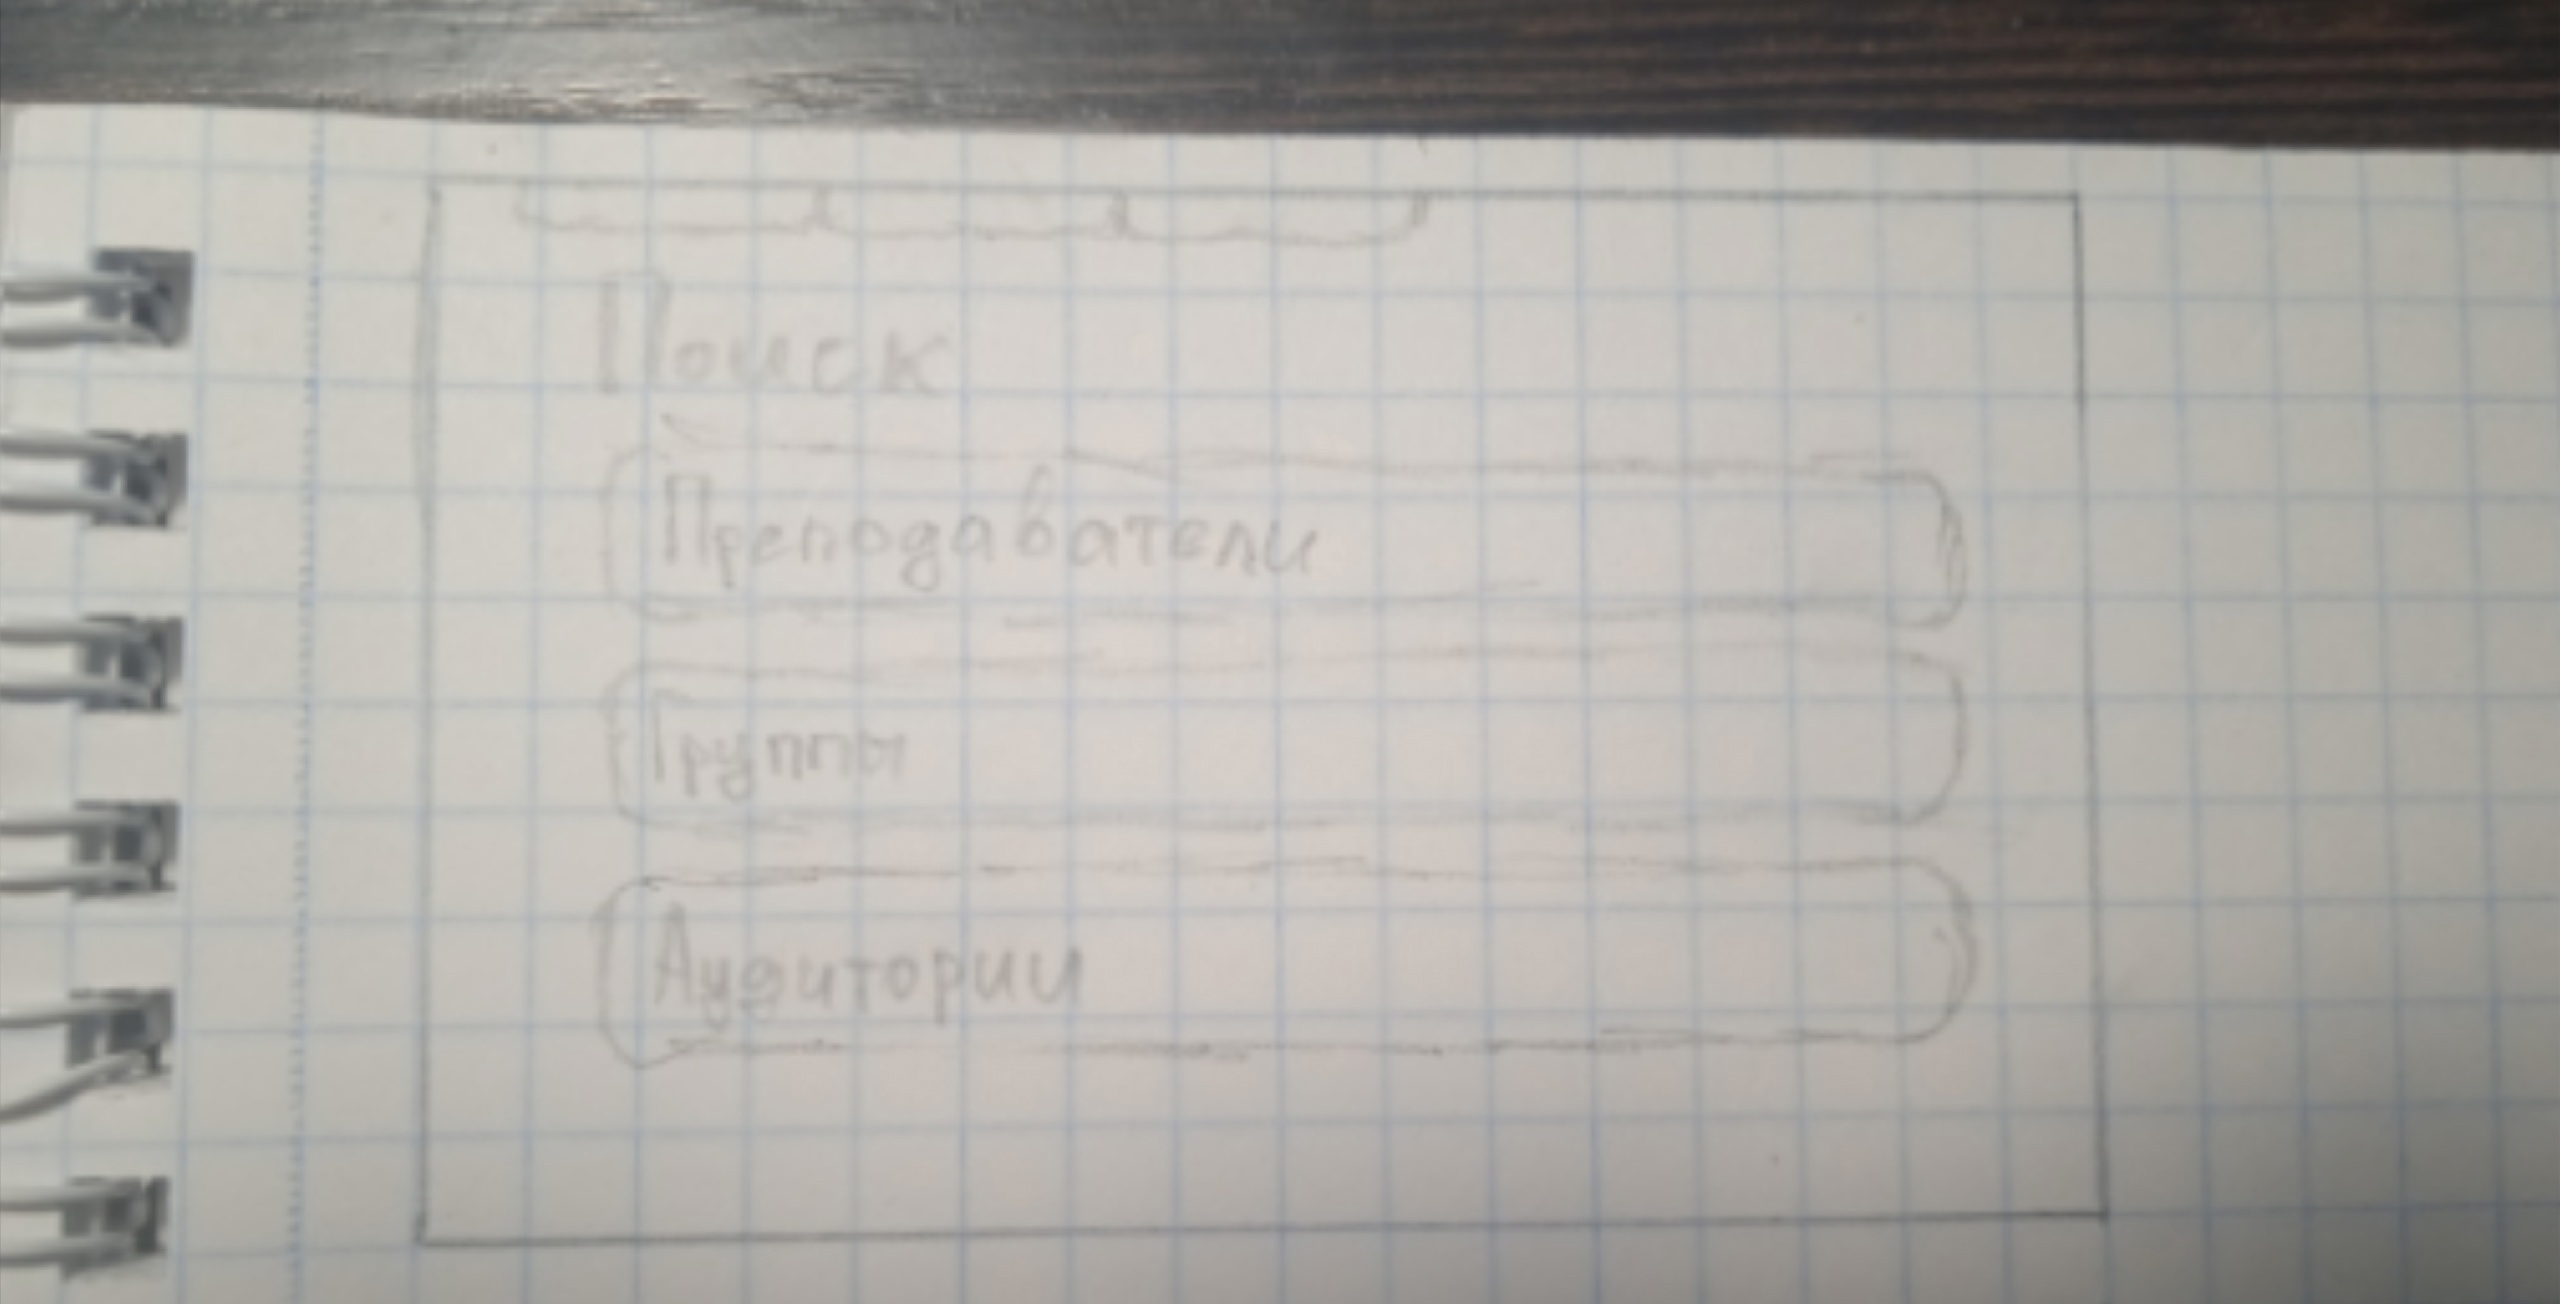 Поиск
Преподаватели
Группы
Аудитории